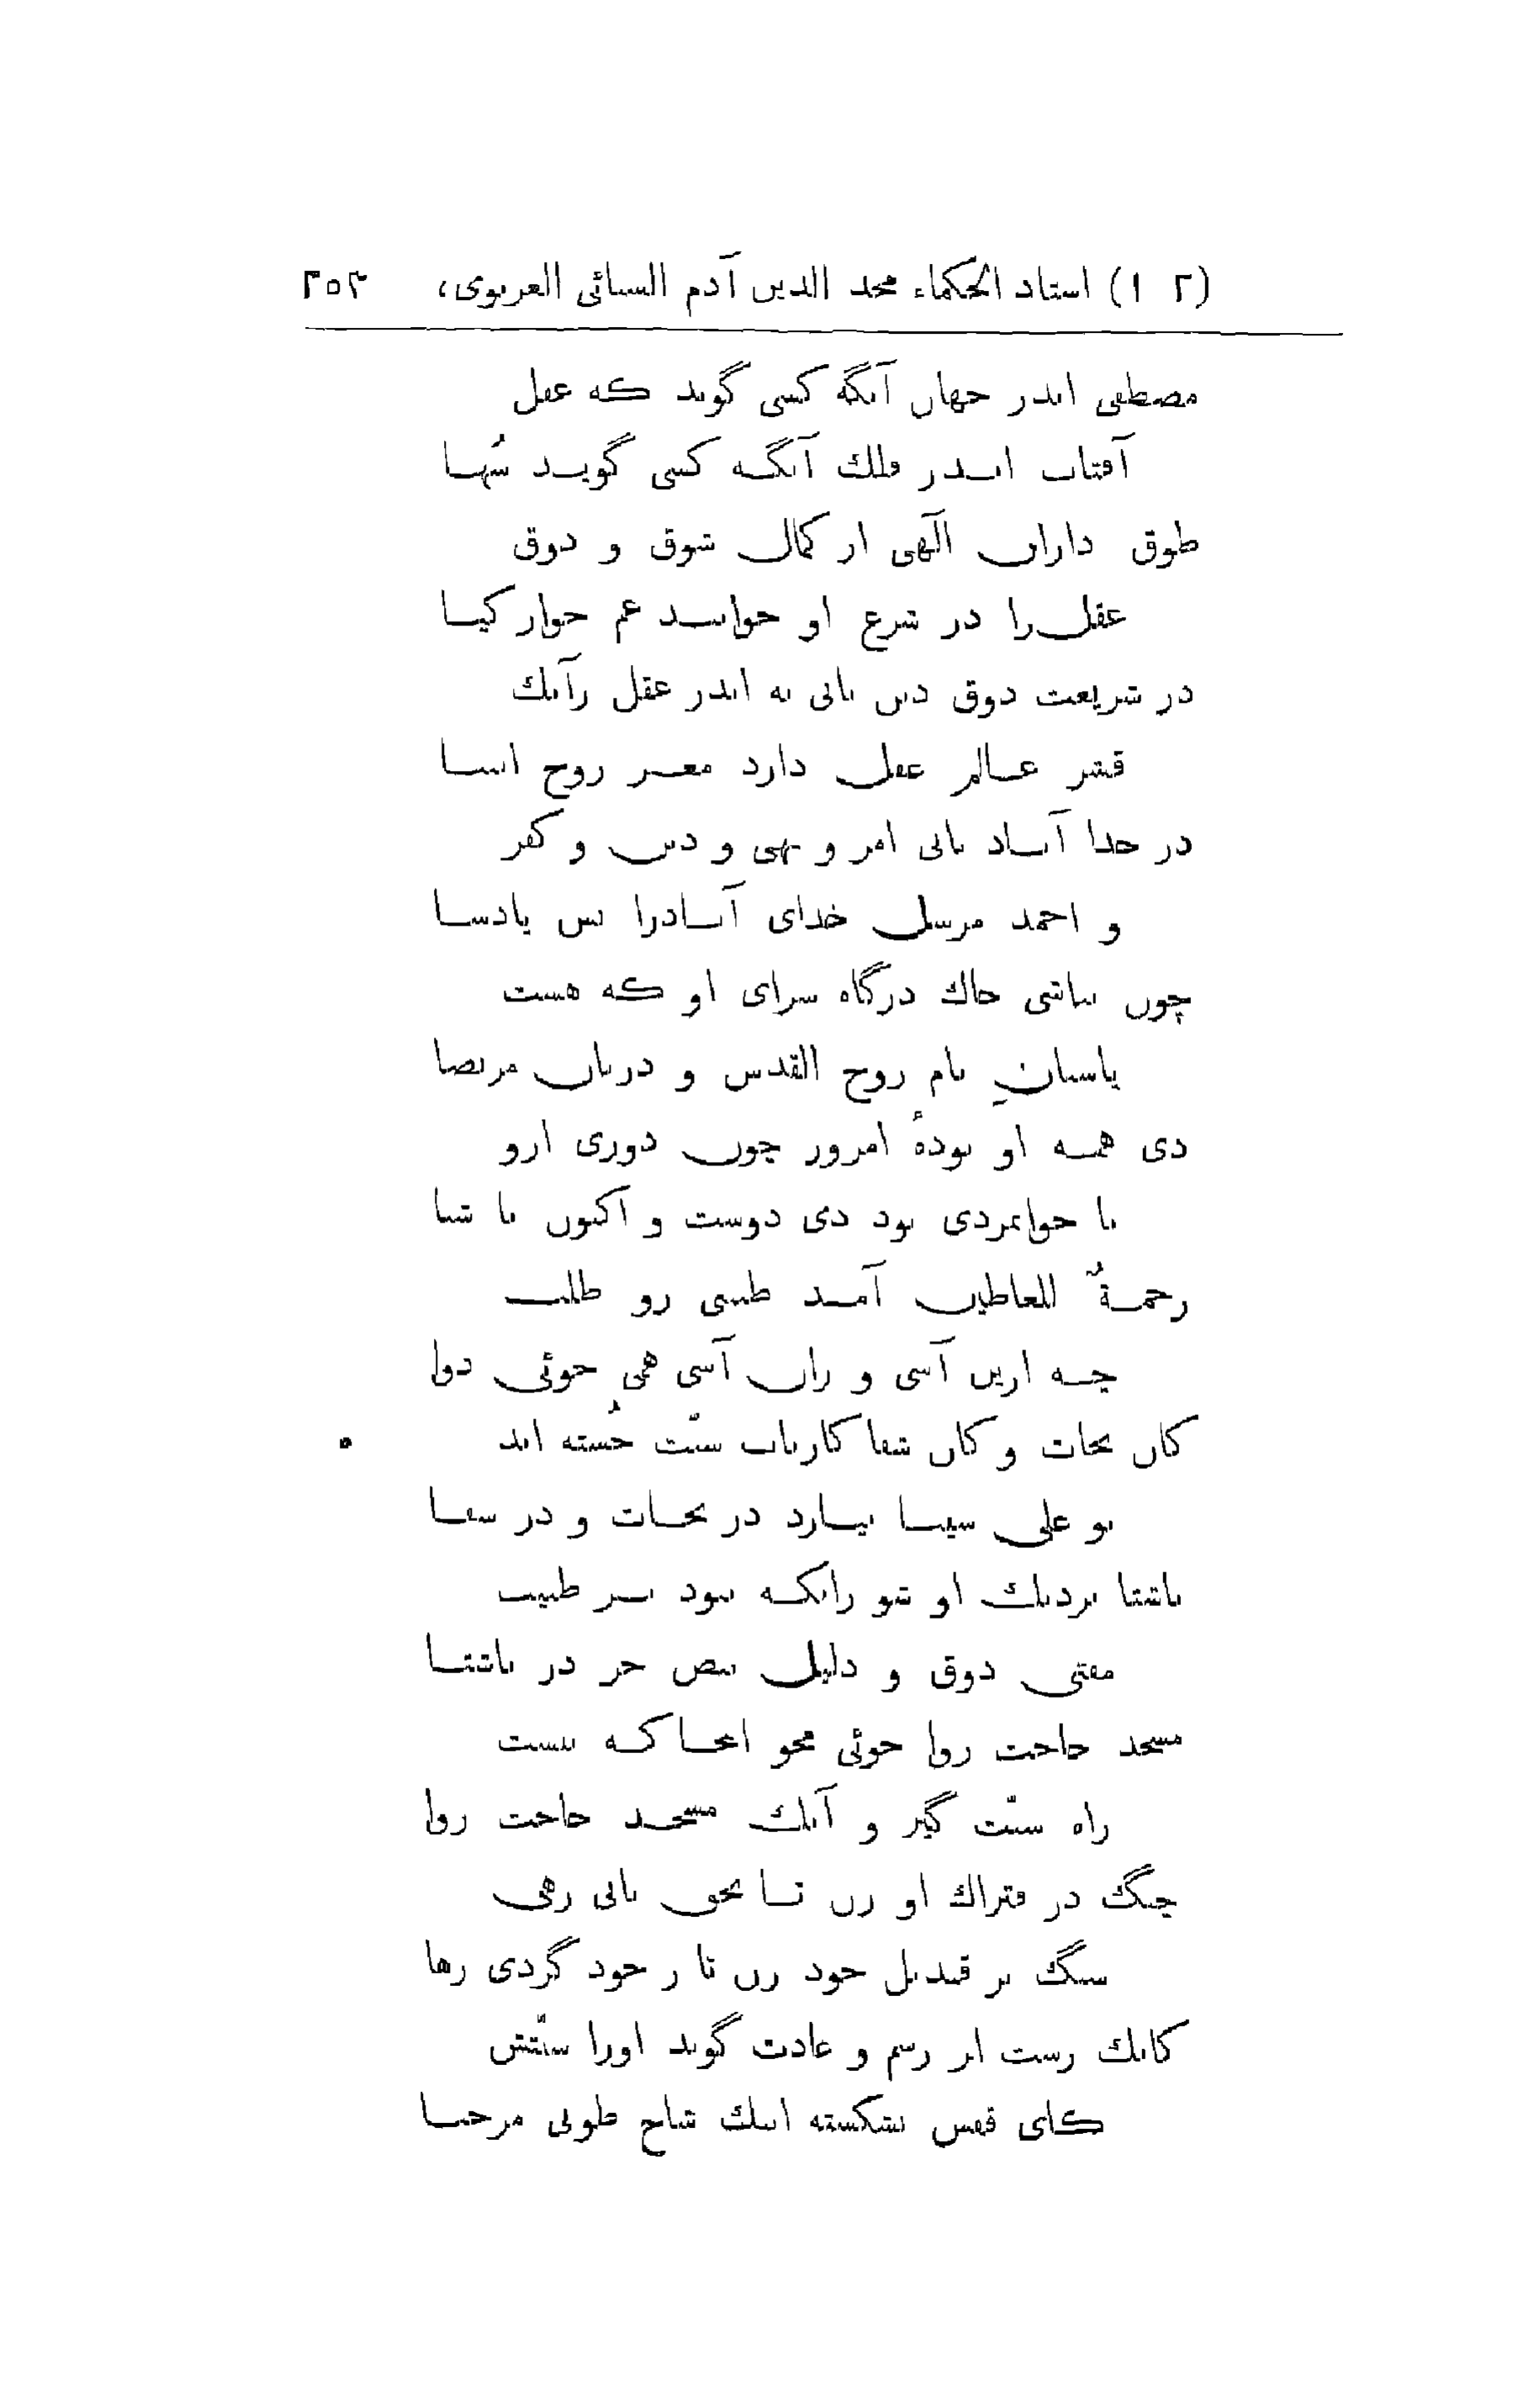 (۲ ۱) استاد الحکماء مجد الدین آدم السنائی الغزنوی، ۲۵۳
مصطفی اندر جهان آنگه کسی گوید که عقل
آفتاب اندر فلك آنگه کسی گوید سُها
طوق داران الٓهی از کمال شوق و ذوق
عقل را در شرع او خوانند غم خوار کیا
در شریعت ذوق دین یابی نه اندر عقل زآنك
قشر عالم عقل دارد مغز روح انبیا
در خدا آباد یابی امر و نهی و دین و کفر
و احمد مرسل خدای آبادرا بس پادشا
چون نباشی خاك درگاه سرای او که هست
پاسبانِ بام روح القدس و دربان مرتضا
دی همه او بودهٔ امروز چون دوری ازو
با جوانمردی بود دی دوست و اکنون با شما
رحمةٌ للعالمین آمد طبیبی زو طلب
چه ازین آسی و زان آسی همی جوئی دوا
کان نجات و کان شفا کارباب سنّت جُسته اند
بو علی سینا نیارد در نجات و در شفا
ناشتا نزدیك او شو زانکه نبود بر طبیب
مفتی ذوق و دلیل نبض جز در ناشتا
مسجد حاجت روا جوئی مجو اینجا که نیست
راه سنّت گیر و آنك مسجد حاجت روا
چنگ در فتراك او زن تا بحق یابی رهی
سنگ بر قندیل خود زن تا ز خود گردی رها
کانك رست از رسم و عادت گوید اورا سنّتش
کای قفس بشکسته اینك شاخ طوبی مرحبا